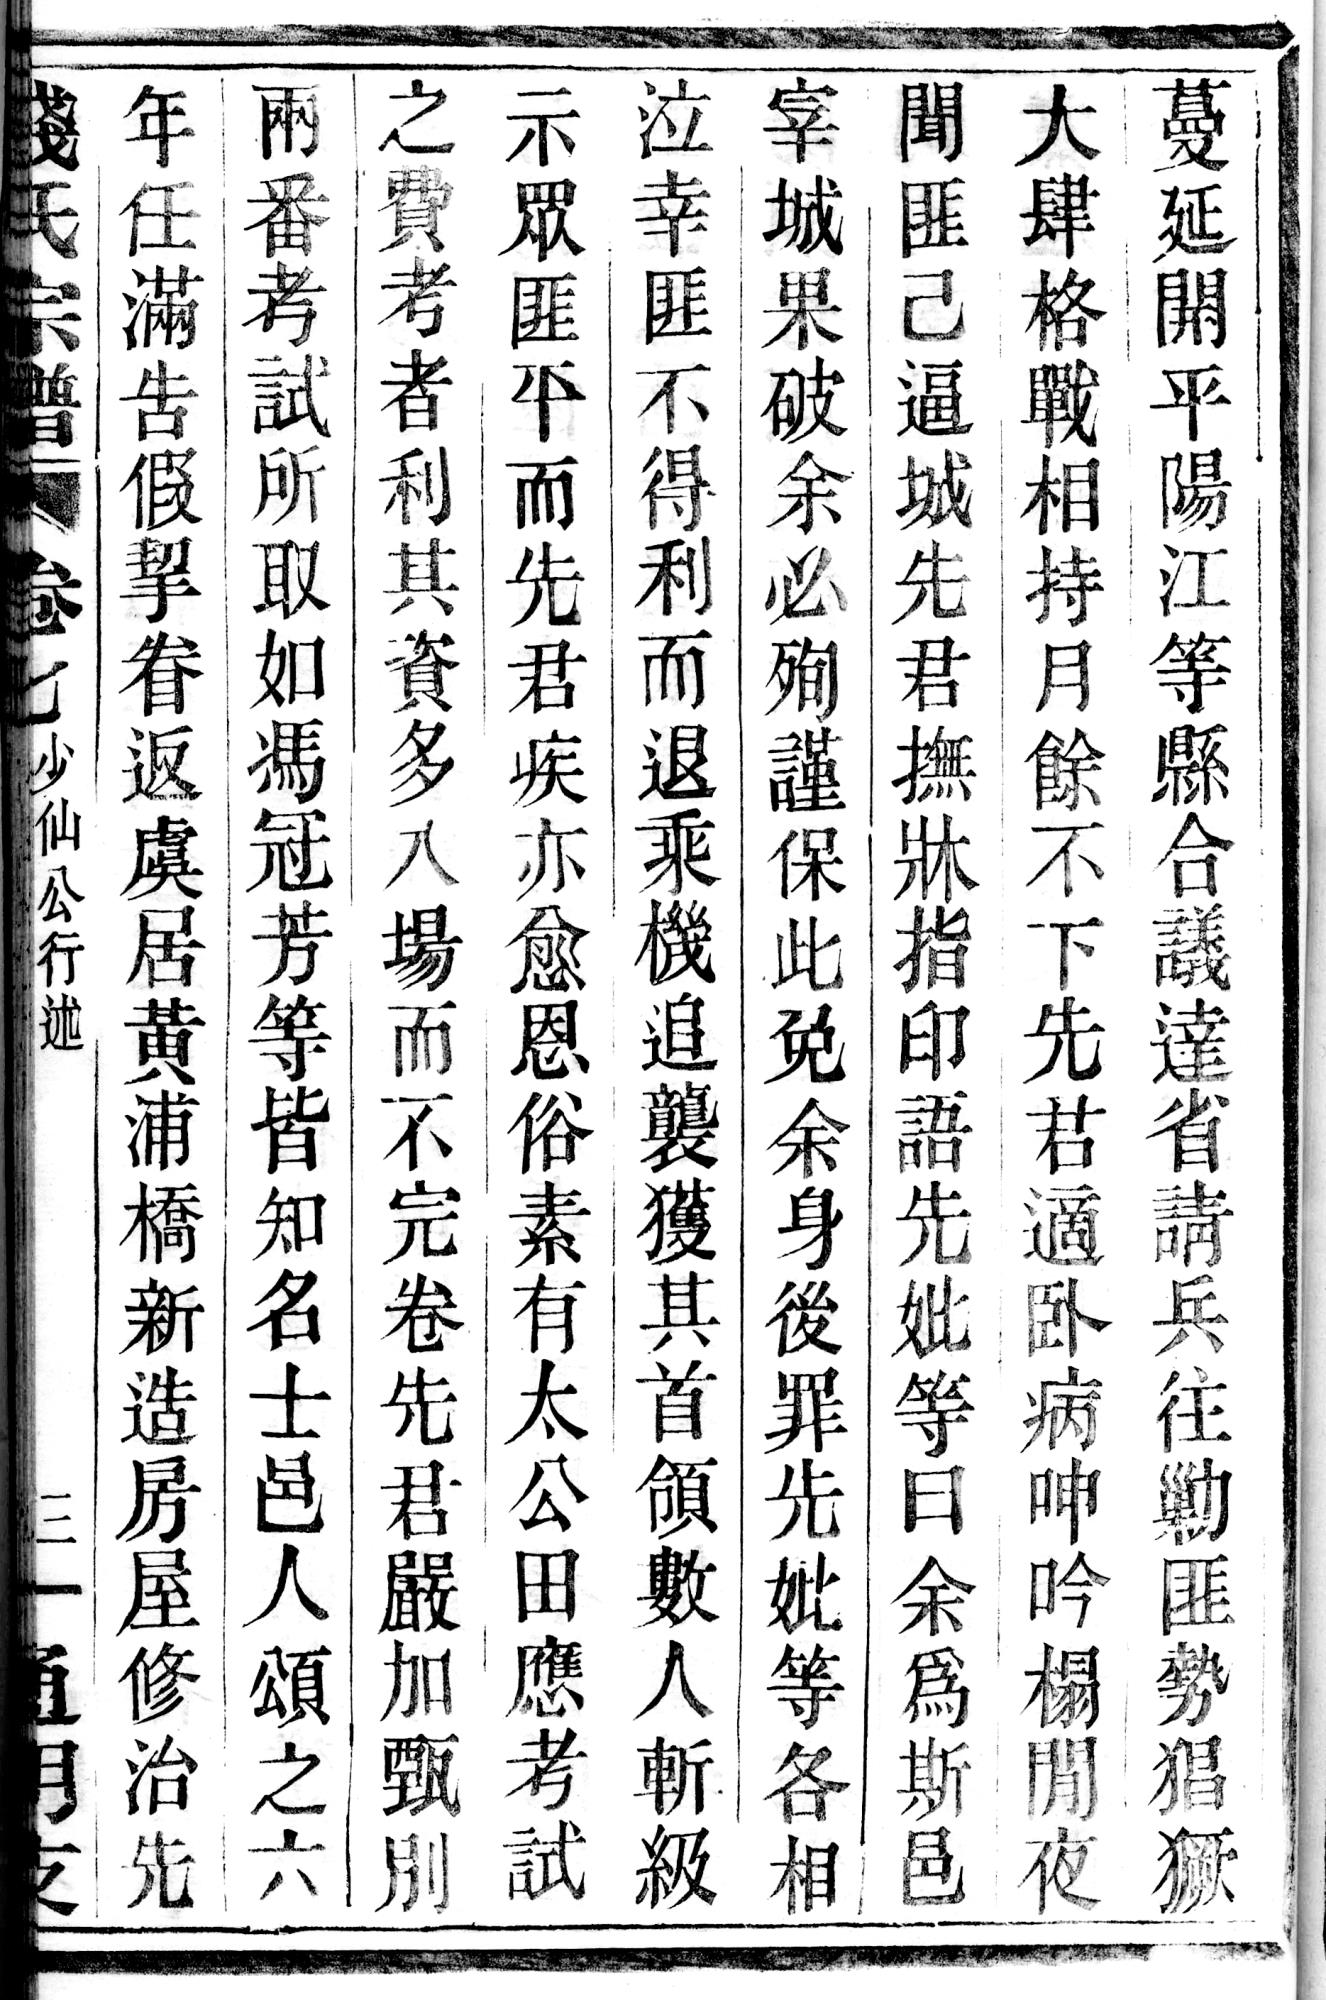 蔓延開平陽江等縣合議達省請兵往勦匪勢猖獗
大肆格戰相持月餘不下先君適卧病呻吟榻閒夜
聞匪己逼城先君撫牀指印語先妣等曰余爲斯邑
宰城果破余必殉謹保此免余身後罪先妣等各相
泣幸匪不得利而退乘機追襲獲其首領數人斬級
示眾匪平而先君疾亦愈恩俗素有太公田應考試
之費考者利其資多入場而不完卷先君嚴加甄別
兩番考試所取如馮冠芳等皆知名士邑人頌之六
年任滿告假挈眷返虞居黃浦橋新造房屋修治先
錢氏宗譜 卷七 少仙公行述 三一 通明支